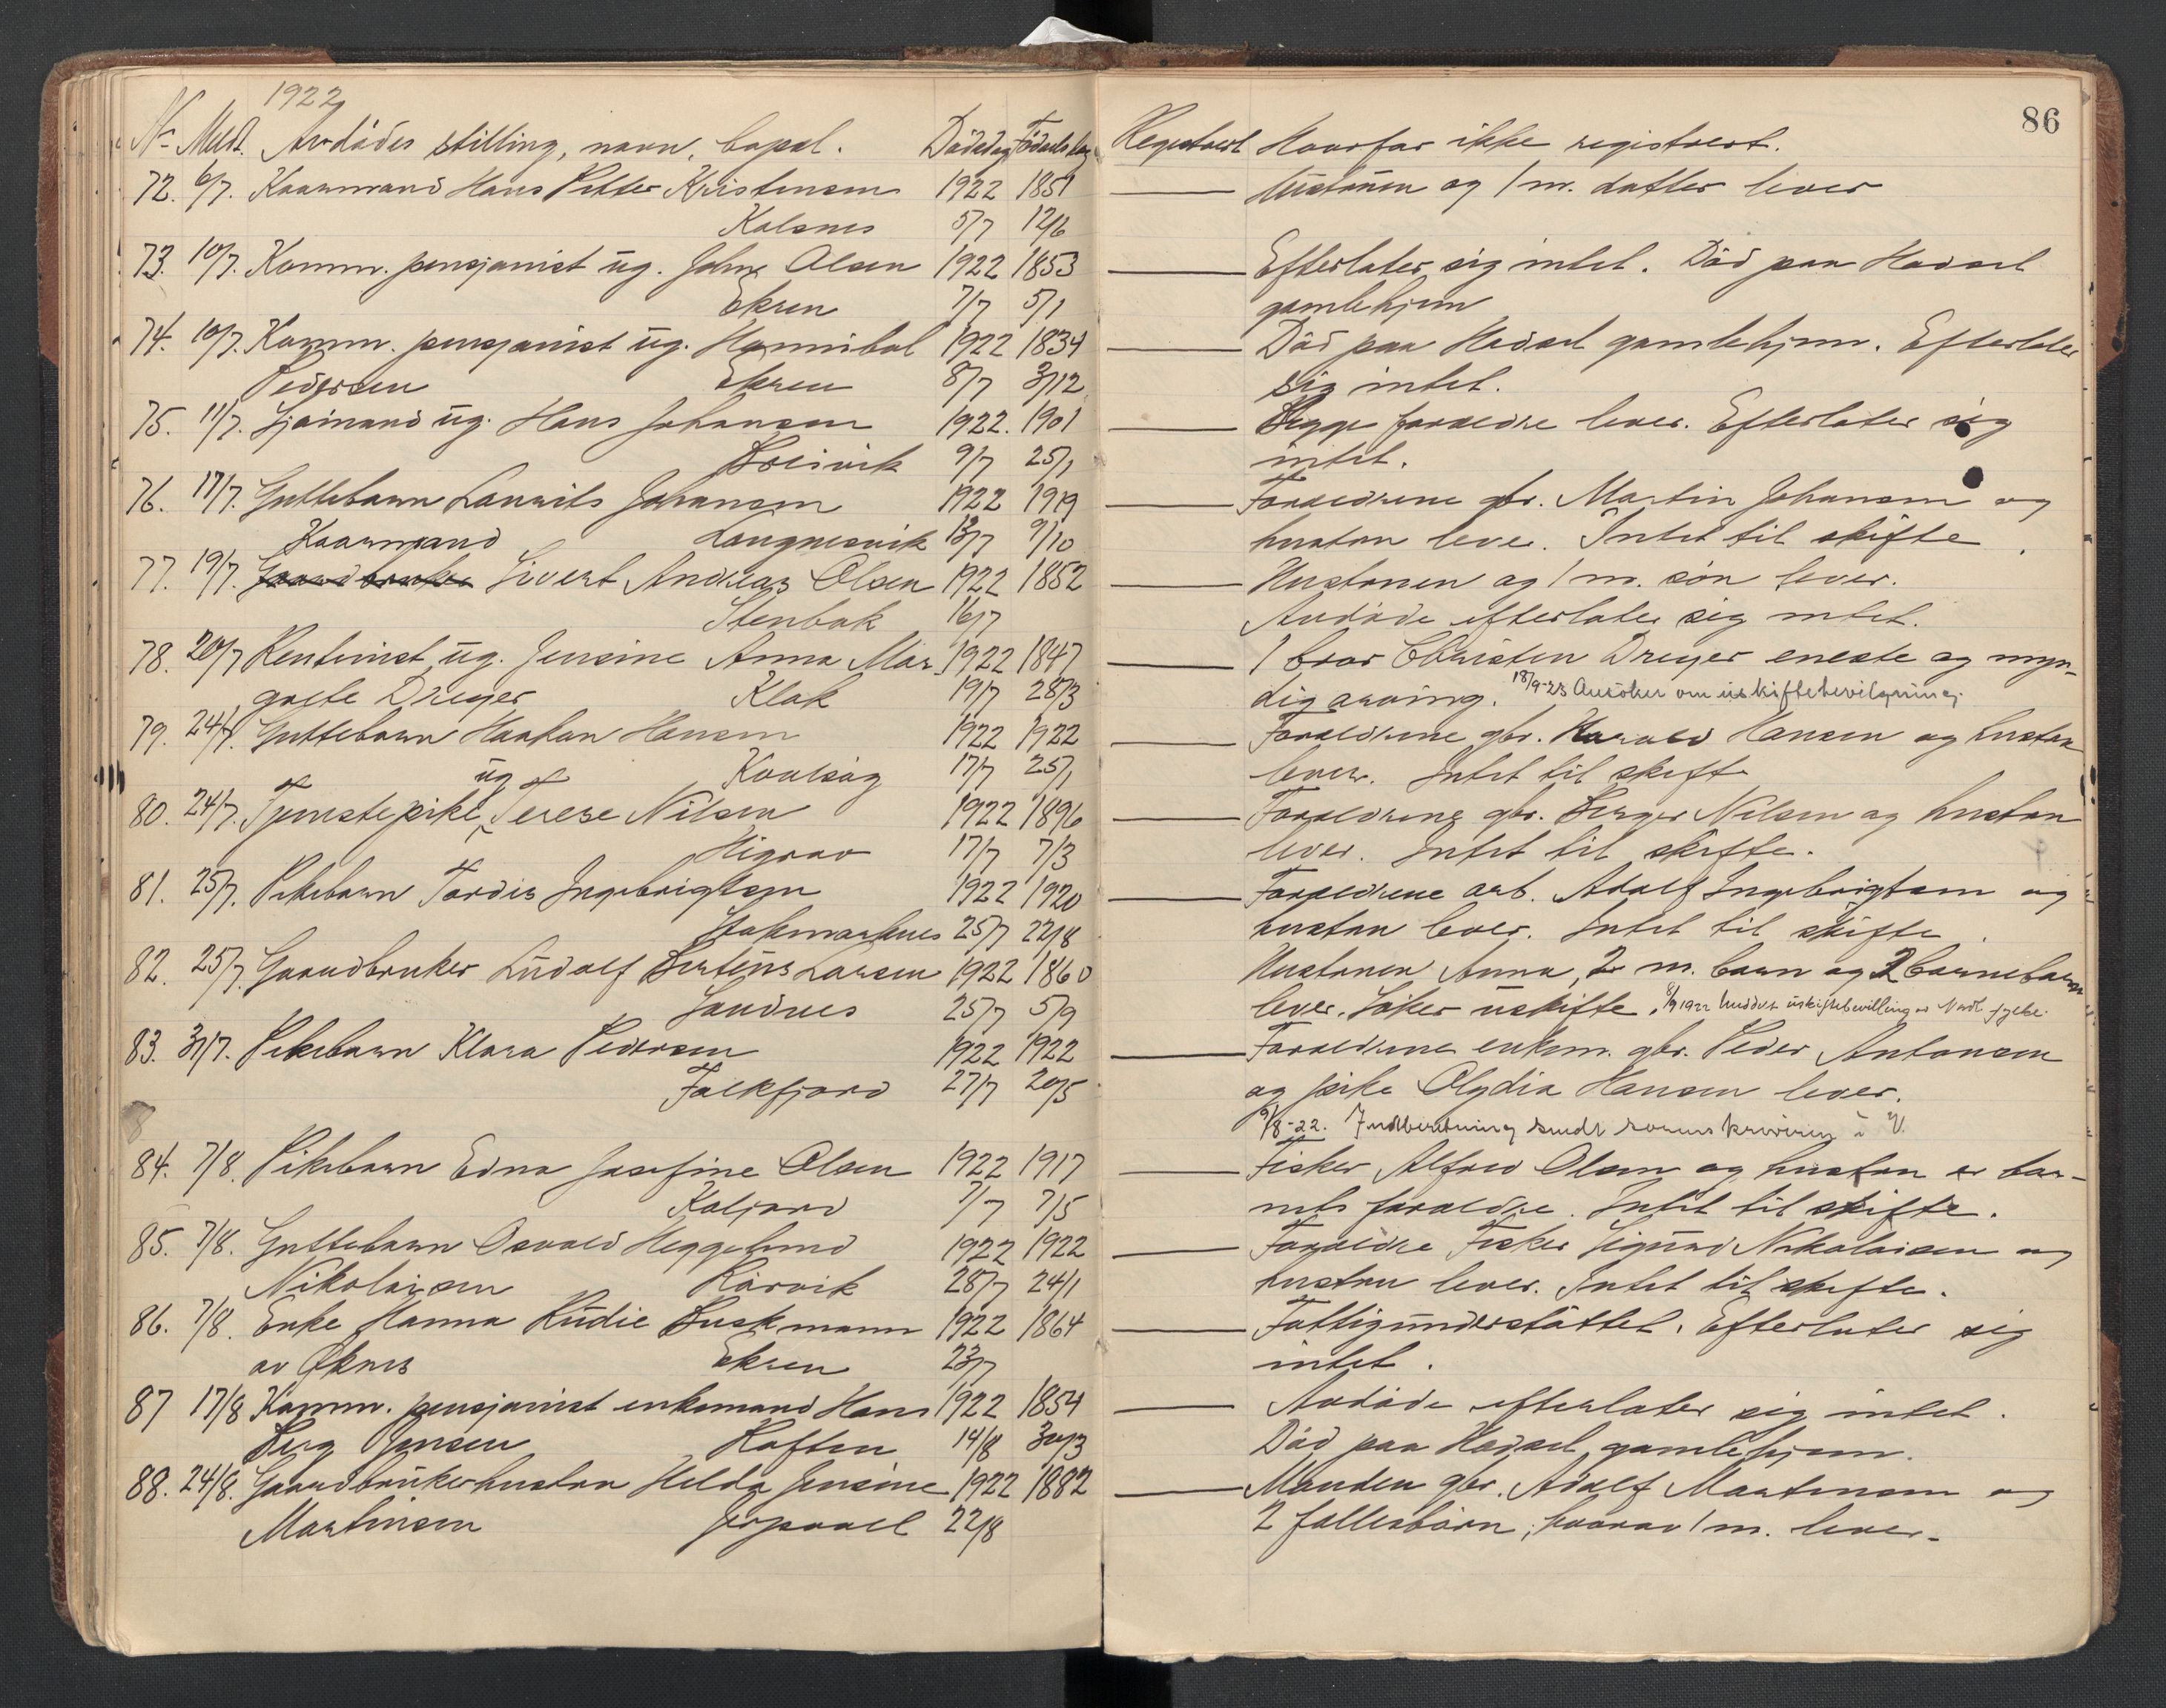 1922
86
Nr. Meld. Avdödes stilling, navn, bopæl. Dödsdag Födselsdag Registrert Hvorfor ikke registrert.
72. 6/7. Kaarmand Hans Petter Kristensen 1922 1851 Hustruen og 1 m. datter lever
Kalsnes 5/7 12/6
73. 10/7. Komm. pensjonist ug. Johan Olsen 1922 1853 Efterlater sig intet. Död paa Hadsel
Ekren 7/7 5/1 gamlehjem
74. 10/7. Komm. pensjonist ug. Hannibal 1922 1834 Död paa Hadsel gamlehjem. Efterlater
Pedersen Ekren 8/7 3/12 sig intet.
75. 11/7. Sjömand ug. Hans Johansen 1922. 1901 Begge forældre lever. Efterlater sig
9/7 25/1 intet.
76. 17/7. Guttebarn Laurits Johansen 1922 1919 Forældrene gbr. Martin Johansen og
Langnesvik 13/7 9/10 hustru lever. Intet til skifte.
Kaarmand
77. 19/7. Gaardbruker Sivert Andreas Olsen 1922 1852 Hustruen og 1 m. sön lever.
Stenbak 16/7 Avdöde efterlater sig intet.
78. 20/7 Rentenist ug. Jensine Anna Mar- 1922 1847 1 bror Christen Dreyer eneste og myn-
grete Dreyer Klak 19/7 28/3 dig arving. 18/9-23 Ansöker om uskiftebevilgning.
79. 24/7. Guttebarn Haakon Hansen 1922 1922 Forældrene gbr. Harald Hansen og hustru
Kvalsög 17/7 25/1 lever. Intet til skifte
80. 24/7. Tjenestepike ug Terese Nilsen 1922 1896 Forældrene gbr. Birger Nilsen og hustru
Higrav 17/7 7/3 lever. Intet til skifte.
81. 25/7. Pikebarn Tordis Ingebrigtsen 1922 1920 Forældrene arb. Adolf Ingebrigtsen og
Stokmarknes 25/7 22/8 hustru lever. Intet til skifte.
82. 25/7. Gaardbruker Ludolf Bertëus Larsen 1922 1860 Hustruen Anna, 2 m. barn og 2 barnebarn
Sandnes 25/7 5/9 lever. Söker uskifte. 8/9 1922 meddelt uskiftebevilling av Nordl. fylke.
83. 31/7. Pikebarn Klara Pedersen 1922 1922 Forældrene enkem. gbr. Peder Antonsen
Falkfjord 27/7 20/5 og pike Olydia Hansen lever.
9/8-22. Indberetning sendt sorenskriveren i V.
84. 7/8. Pikebarn Edna Josefine Olsen 1922 1917 Fisker Alfred Olsen og hustru er bar-
Kaljord 7/7 7/5 nets forældre. Intet til skifte.
85. 7/8. Guttebarn Osvald Heggelund 1922 1922 Forældre Fisker Sigurd Nikolaisen og
Nikolaisen Rörvik 28/7 24/1 hustru lever. Intet til skifte.
86. 7/8. Enke Hanna Rudie Buskmann 1922 1864 Fattigunderstöttet. Efterlater sig
av Öksnes Ekren 23/7 intet.
87 17/8 Komm. pensjonist enkemand Hans 1922 1854 Avdöde efterlater sig intet.
Berg Jensen Haften 14/8 30/3 Död paa Hadsel gamlehjem.
88. 24/8. Gaardbrukerhustru Helda Jensine 1922 1882 Manden gbr. Adolf Martinsen og
Martinsen 22/8 2 fællesbörn, hvorav 1 m. lever.